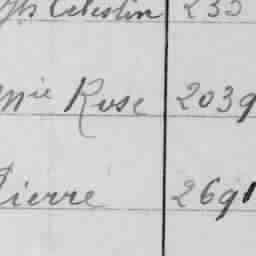 Jh Celestin 235
Mie Rose 2039
Pierre 2691